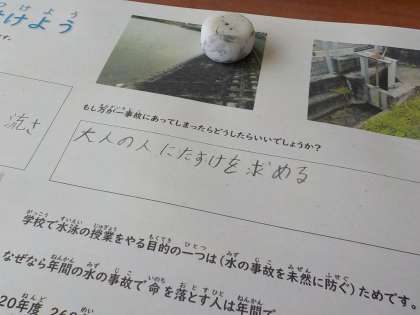 けよう
です。
もし万が一事故にあってしまったらどうしたらいいでしょうか?
流さ
大人の人にたすけを求める
学校で水泳の授業をやる目的の一つは(水の事故を未然に防ぐ)ためです。
なぜなら年間の水の事故で命を落とす人は年間で
20年度